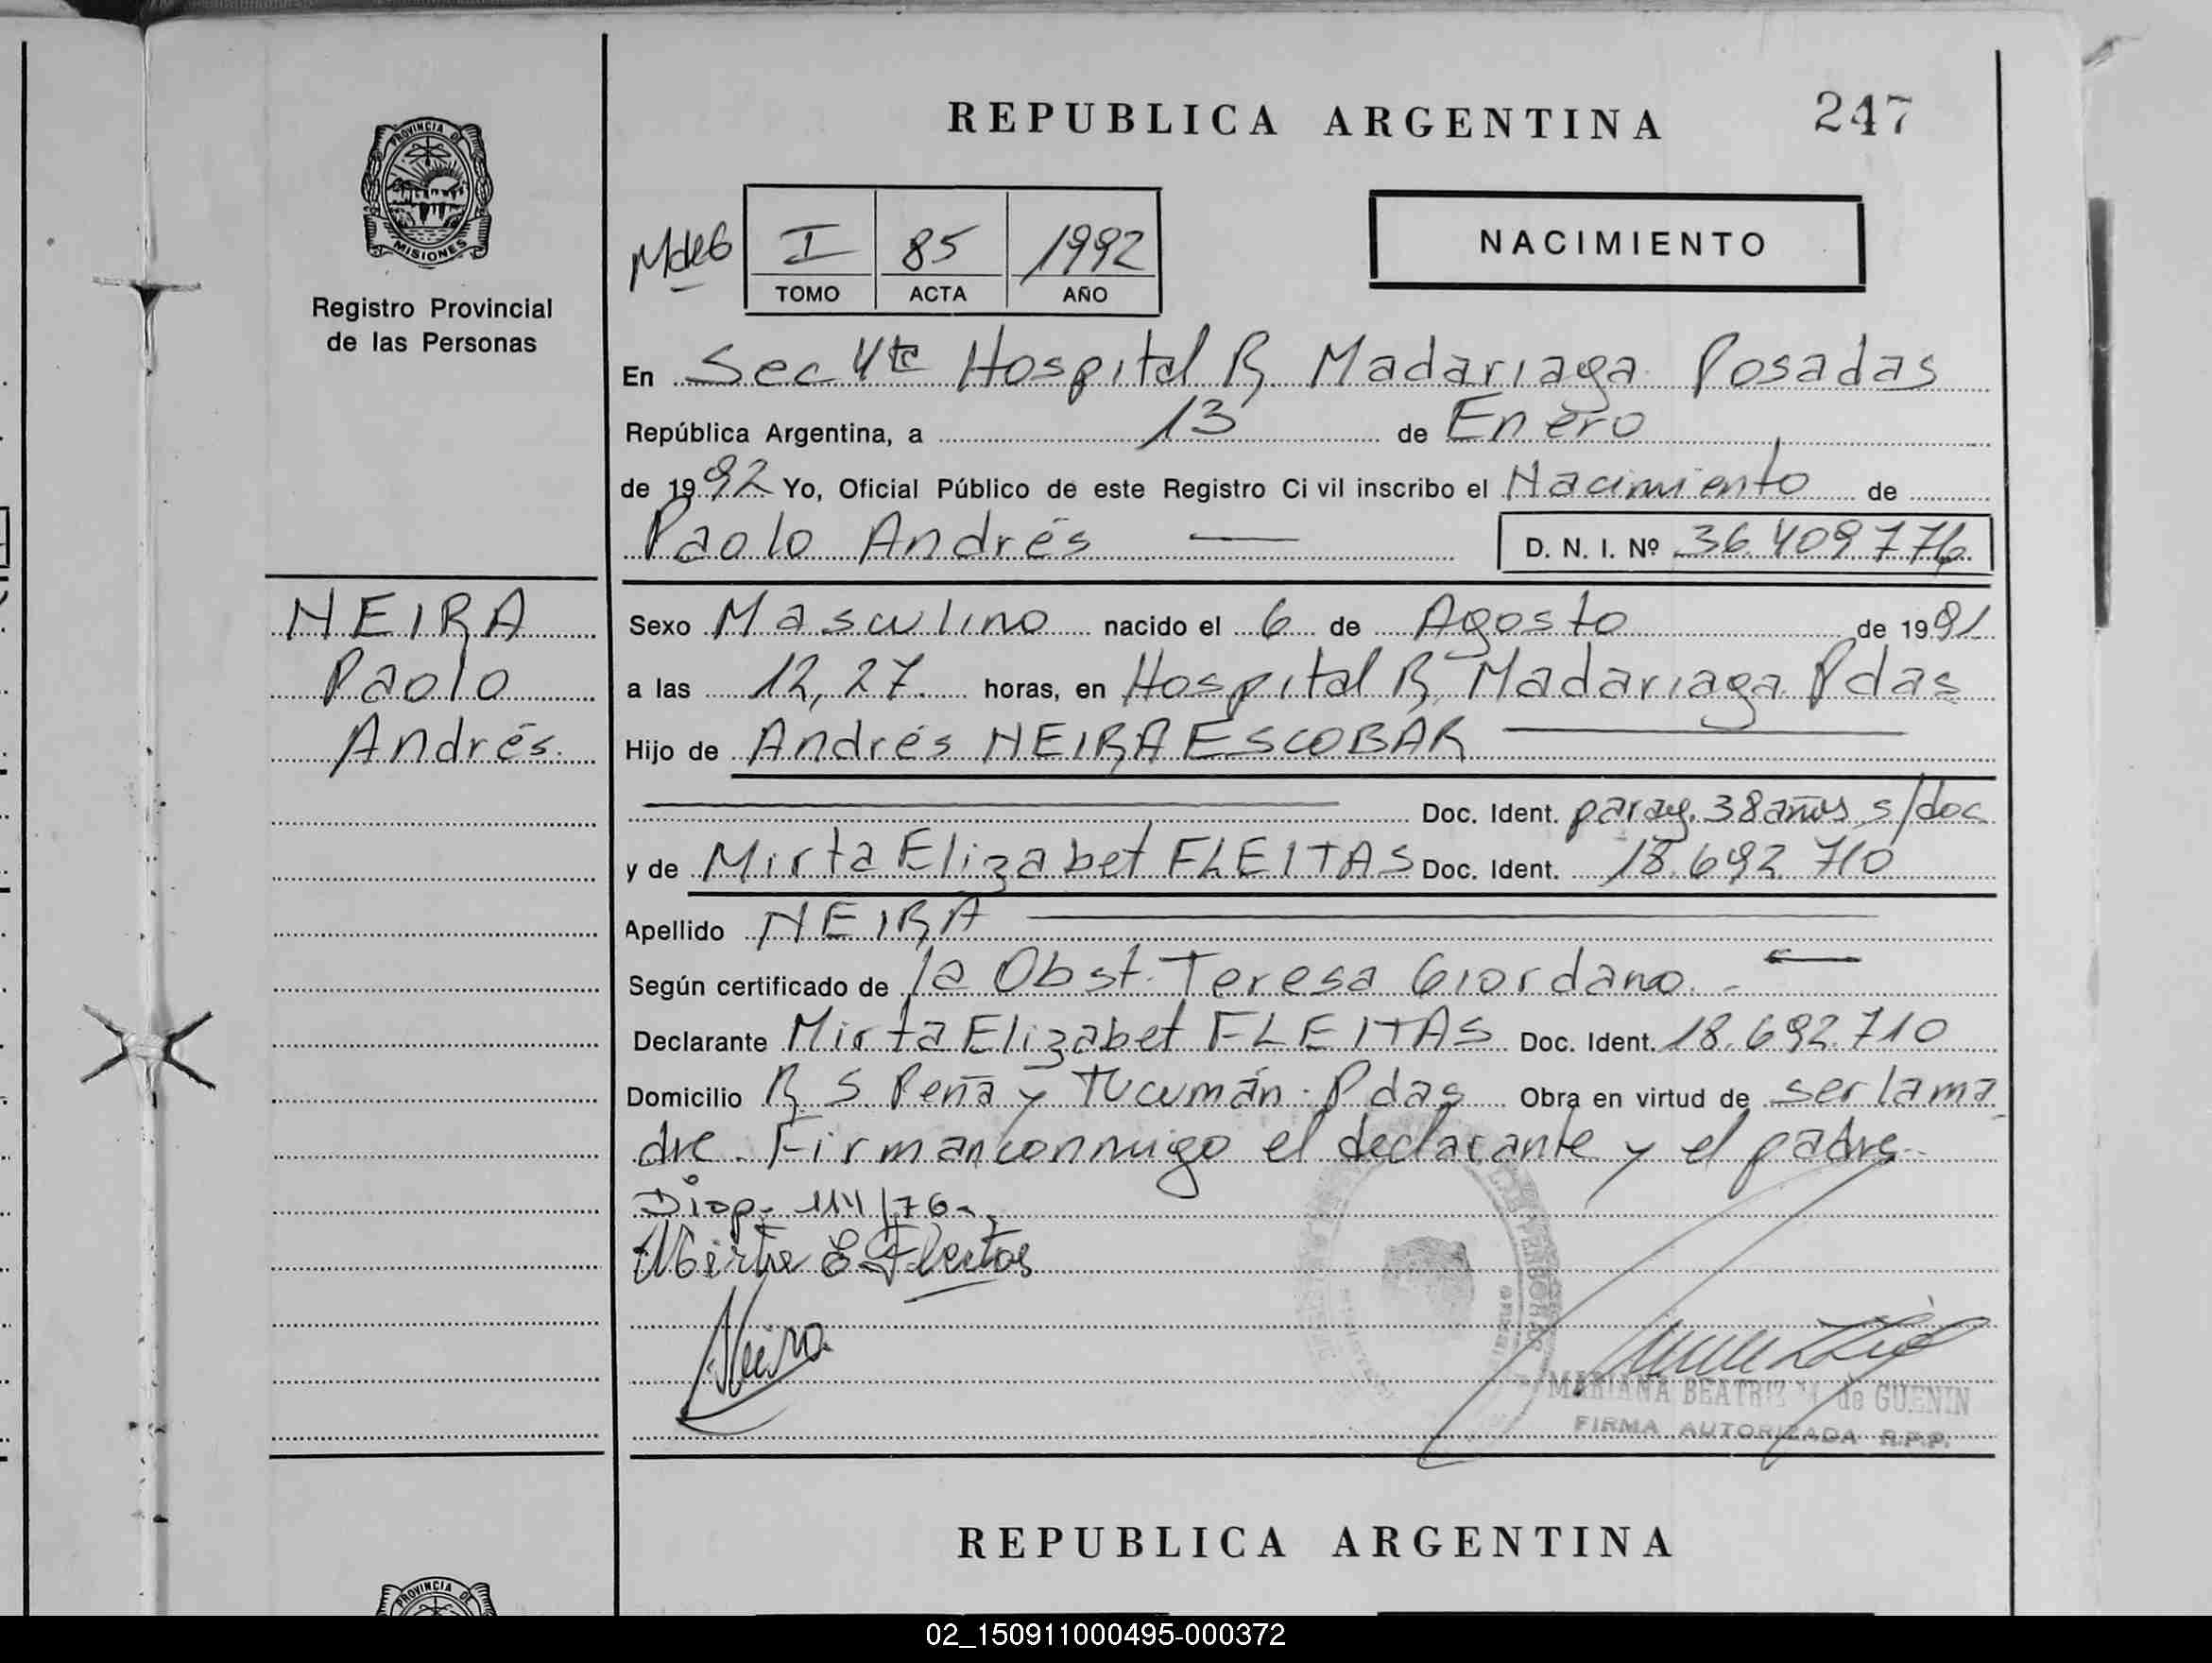 REPUBLICA ARGENTINA
247
PROVINCIA DE MISIONES
Registro Provincial
de las Personas
I 85 1992
TOMO ACTA AÑO
NACIMIENTO
En Sec 4ta Hospital R. Madariaga Posadas
República Argentina, a 13 de Enero
de 1992 Yo, Oficial Público de este Registro Civil inscribo el Nacimiento de
Paolo Andrés D. N. I. Nº 36.409.776
NEIRA
Paolo
Andrés.
Sexo Masculino nacido el 6 de Agosto de 1991
a las 12,27 horas, en Hospital R. Madariaga Pdas
Hijo de Andrés NEIRA ESCOBAR
Doc. Ident. parag. 38 años s/doc
y de Mirta Elizabet FLEITAS Doc. Ident. 18.692.710
Apellido NEIRA
Según certificado de la Obst. Teresa Giordano.-
Declarante Mirta Elizabet FLEITAS Doc. Ident. 18.692.710
Domicilio R. S. Peña y Tucumán. Pdas Obra en virtud de ser la ma
dre. Firman conmigo el declarante y el padre.-
Disp. 114/76-
Mirta E Fleitas
Neira
MARIANA BEATRIZ M de GUENIN
FIRMA AUTORIZADA R.P.P.
REPUBLICA ARGENTINA
PROVINCIA DE
02_150911000495-000372